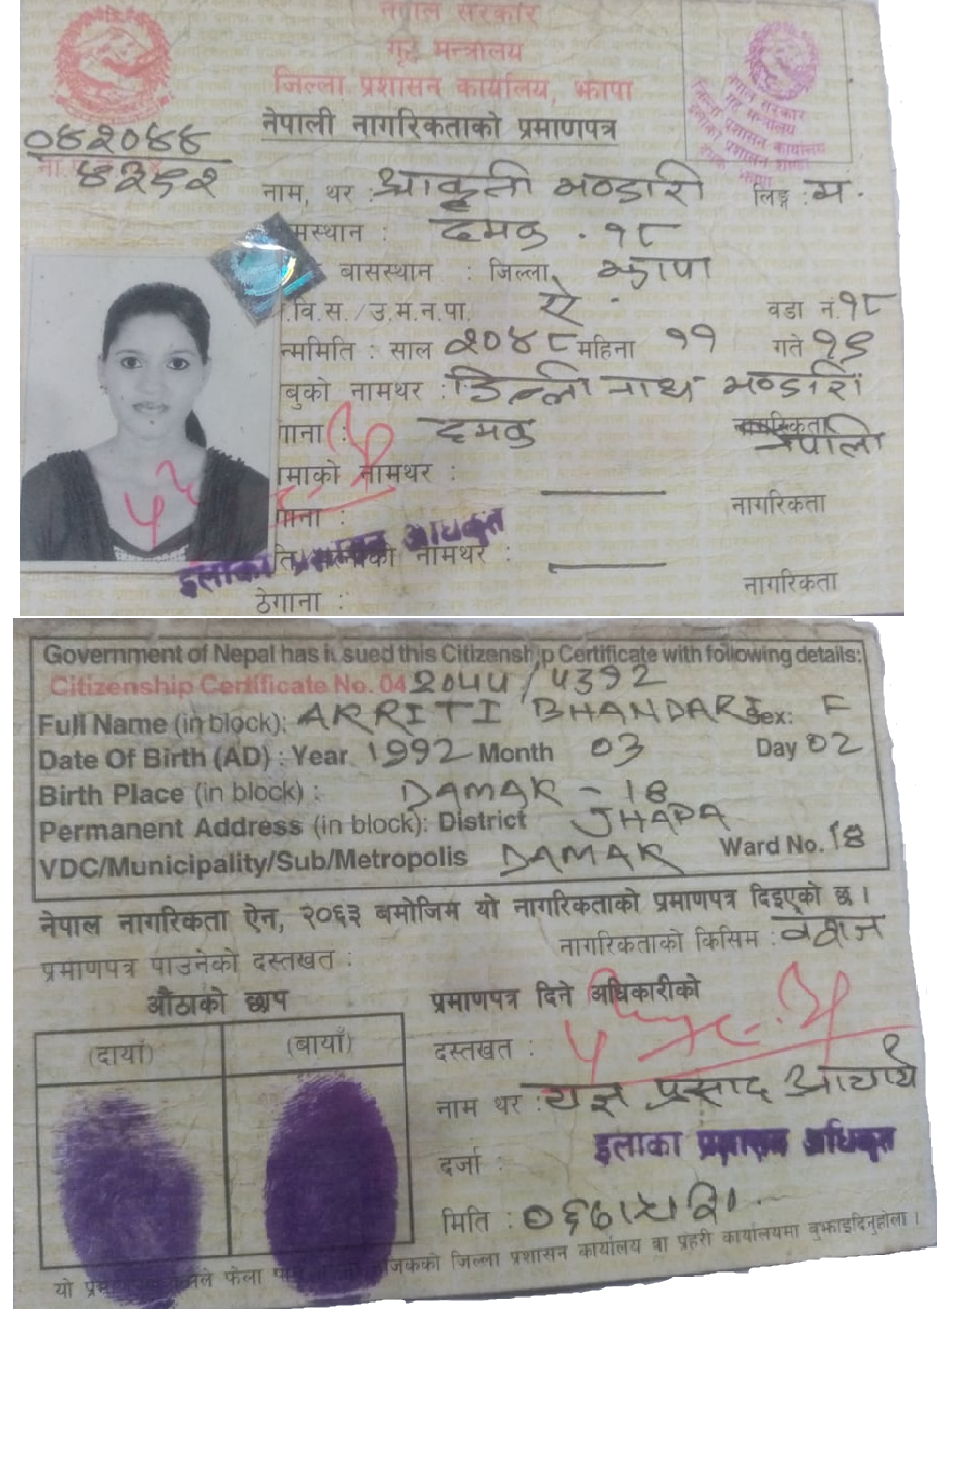 नेपाल सरकार
गृह मन्त्रालय
जिल्ला प्रशासन कार्यालय, झापा
नेपाली नागरिकताको प्रमाणपत्र
नेपाल सरकार
गृह मन्त्रालय
जिल्ला प्रशासन कार्यालय
झापा
०४२०४४
४३९२
नाम, थर : आकृती भण्डारी लिङ्ग : म.
मस्थान : दमक - १८
बासस्थान : जिल्ला झापा
.वि.स./उ.म.न.पा. ऐ वडा नं. १८
न्ममिति : साल २०४८ महिना ११ गते १९
बुको नामथर : डिल्ली नाथ भण्डारी
गाना : दमक नागरिकता नेपाली
माको नामथर :
गाना : नागरिकता
को नामथर :
इलाका प्रशासन अधिकृत
ठेगाना : नागरिकता
Government of Nepal has issued this Citizenship Certificate with following details:
Citizenship Certificate No. 042044/4392
Full Name (in block): AKRITI BHANDARI Sex: F
Date Of Birth (AD) : Year 1992 Month 03 Day 02
Birth Place (in block) : DAMAK - 18
Permanent Address (in block): District JHAPA
VDC/Municipality/Sub/Metropolis DAMAK Ward No. 18
नेपाल नागरिकता ऐन, २०६३ बमोजिम यो नागरिकताको प्रमाणपत्र दिइएको छ ।
नागरिकताको किसिम : वंशज
प्रमाणपत्र पाउनेको दस्तखत :
औंठाको छाप
(दायाँ) (बायाँ)
प्रमाणपत्र दिने अधिकारीको
दस्तखत :
नाम थर : यज्ञ प्रसाद आचार्य
दर्जा : इलाका प्रशासन अधिकृत
मिति :
यो फेला जिल्ला प्रशासन कार्यालय वा प्रहरी कार्यालयमा बुझाइदिनुहोला ।